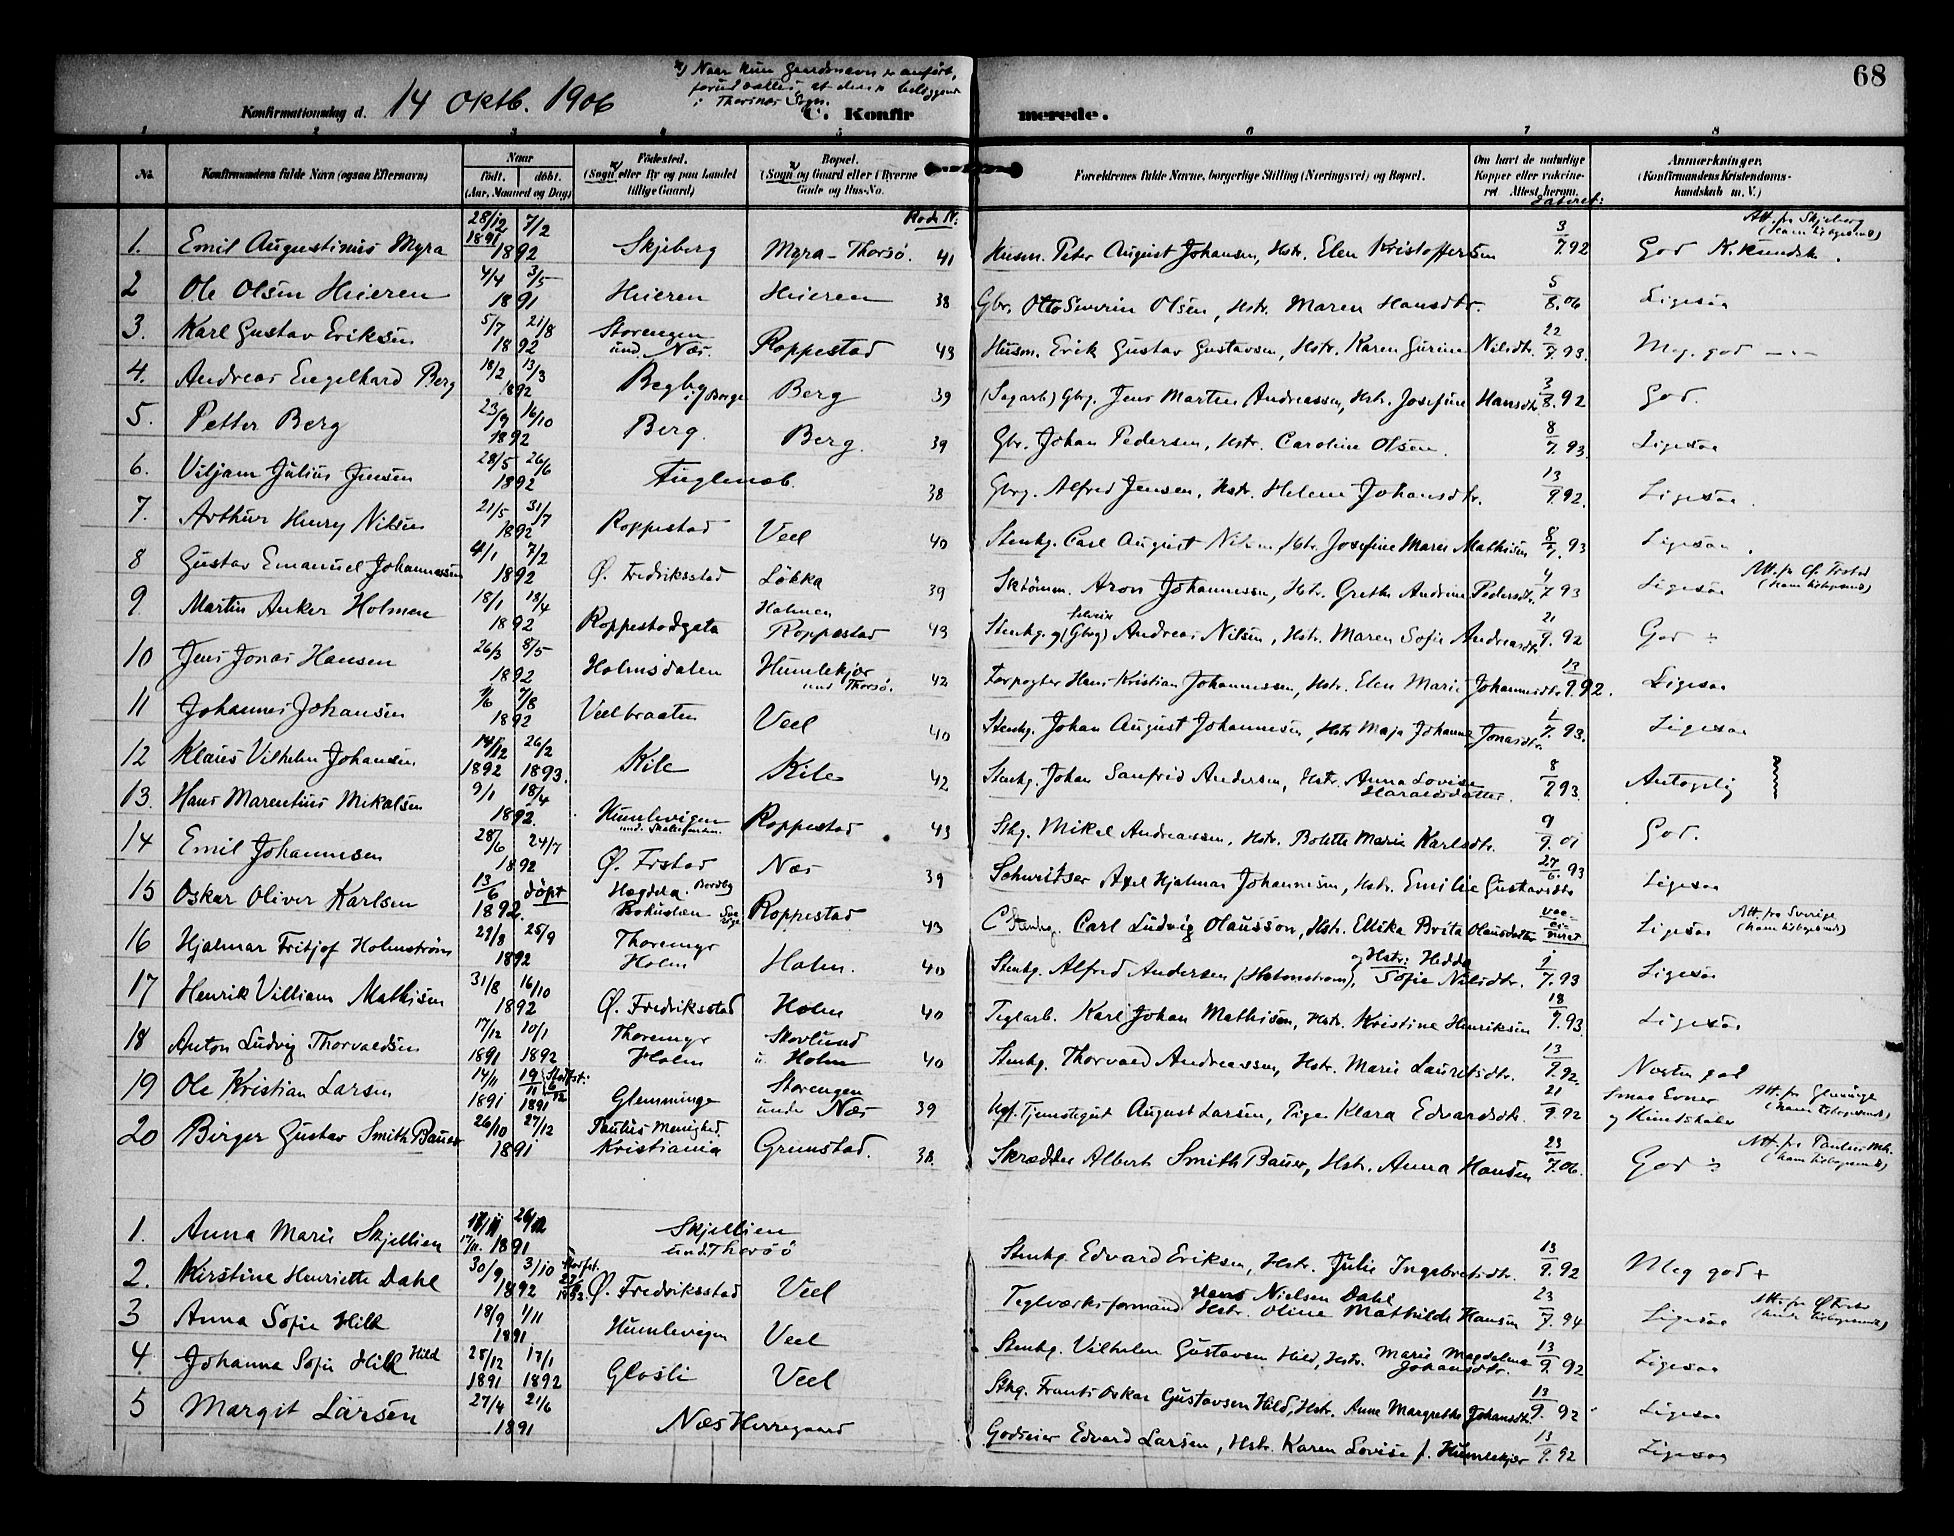 68
x) Naar kun Gaardsnavn er anført,
forudsættes, at den er beliggende
i Thorsnæs Sogn.
Konfirmationsdag d. 14 Oktb. 1906
C. Konfirmerede.
1 2 3 4 5 6 7 8
No. Konfirmandens fulde Navn (ogsaa Efternavn) Naar født. døbt. (Aar, Maaned og Dag) Fødested. (Sogn eller By og paa Landet tillige Gaard) Bopæl. (Sogn og Gaard eller i Byerne Gade og Hus-No. Forældrenes fulde Navne, borgerlige Stilling (Næringsvei) og Bopæl. Om havt de naturlige Kopper eller vakcineret Attest herom. Anmærkninger. (Konfirmandens Kristendomskundskab m. V.)
Rode N:
Dateret:
1. Emil Augustinus Myra 28/12 1891 7/2 1892 Skjeberg Myra - Thorsö. 41 Husm. Peter August Johansen, Hstr. Elen Kristoffersen 3/7 92 God N. kundsk. Att. fra Skjeberg
2 Ole Olsen Heieren 4/4 3/5 1891 Heieren Heieren 38 Gbr. Otto Severin Olsen, Hstr. Maren Hansdtr. 5/8.06 Ligesaa
3. Karl Gustav Eriksen 5/7 21/8 1892 Storengen und. Næs. Roppestad 43 Husm. Erik Gustav Gustavsen, Hstr. Karen Gurine Nilsdtr. 22/7.93. Meg. god - " -
4. Andreas Engelhard Berg 18/2 13/3 1892 Begby i/ Borge Berg 39 (Sagarb) Gbrg. Jens Martin Andreassen, Hstr. Josefine Hansdtr 3/8.92 God.
5. Petter Berg 23/9 16/10 1892 Berg. Berg. 39 Gbr. Johan Pedersen, Hstr. Caroline Olsen. 8/7.93. Ligesaa
6. Viljam Julius Jensen 28/5 26/6 1892 Fuglenæb. 38 Gbrg. Alfred Jensen, Hstr. Helene Johansdtr. 13/9 92. Ligesaa
7. Arthur Henry Nilsen 21/5 31/7 1892 Roppestad Veel 40 Stenhg. Carl August Nilsen, Hstr. Josefine Marie Mathisen 8/7. 93 Ligesaa
8 Gustav Emanuel Johannessen 4/1 7/2 1892 Ø. Fredriksstad Løkka 39 Sktömm. Aron Johannessen, Hstr. Grethe Andrine Pedersdtr. 4/7 93 Ligesaa
9 Martin Anker Holmen 18/1 18/4 1892 Roppestadgata Holmen Roppestad 43 Stenhg. og (Gbrg) Andreas Nilsen, Hstr. Maren Sofie Andreasdtr 21/9. 92 God
10 Jens Jonas Hansen 26/3 8/5 1892 Holmsdalen Humlekjær und Thorsø. 42 Forpagter Hans Kristian Johannessen, Hstr. Elen Marie Johannesdtr 13/9.92. Ligesaa
11 Johannes Johansen 7/8 1892 Veelbraaten Veel 40 Stenhg. Johan August Johannesen, Hstr Maja Johanne Jonasdtr. 1/7. 93. Ligesaa
12 Klaus Vilhelm Johansen 14/12 1892 26/2 1893. Kile Kile 42 Stenhg. Johan Sanfrid Andersen, Hstr. Anna Lovise Haraldsdatter. 8/7 93. Antagelig
13. Hans Marentius Mikalsen 9/1 18/4 1892 Humlevigen Roppestad 43 Sthg. Mikal Andreassen, Hstr. Bolette Marie Karlsdtr. 9/9. 01 God.
14 Emil Johannesen 28/6 24/7 1892 Ø. Frstad Næs 39 Schweitser Axel Hjalmar Johannesen, Hstr. Emilie Gustavsdtr 27/6. 93 Ligesaa
15 Oskar Oliver Karlsen 13/6 döpt 1892. Bohuslæn Roppestad 43 Stenhg. Carl Ludvig Olausson, Hstr. Ellika Brita Olausdatter Ligesaa Att. fra Sverige
16 Hjalmar Fritjof Holmström 29/8 25/9 1892 Thoremyr Holm Holm. 40 Stenhg. Alfred Andersen (Holmstrøm), og Hstr: Hedda Sofie Nilsdtr. 1/7.93 Ligesaa
17 Henrik Villiam Mathisen 31/8 16/10 1892 Ø. Fredriksstad Holm 40 Teglarb. Karl Johan Mathisen, Hstr. Kristine Henriksen 18/7.93. Ligesaa
18 Anton Ludvig Thorvaldsen 17/12 1891 10/1 1892 Thoremyr Holm Skovlund u. Holm 40 Stenhg. Thorvald Andreassen, Hstr. Marie Lauritsdtr. 13/9.92. Næsten god
19 Ole Kristian Larsen 14/11 1891 19/11 1891 Glemminge Storengen under Næs 39 Ugf. Tjenestegut August Larsen, Pige Klara Edvardsdtr. 21/9.92 Smaa Evner og Kundskaber Att. fra Glemminge
20 Birger Gustav Smith Bauer 26/10 27/12 1891 Paulus Menighed. Kristiania Grimstad. 38. Skrædder Albert Smith Bauer, Hstr. Anna Hansen 23/7.06. God Att. fra Paulus Mh.
1. Anna Marie Skjellien 17/11. 1891 Skjellien und. Thorsö Stenhg. Edvard Eriksen, Hstr. Julie Ingebretsdtr. 13/9.92 Meg god +
2. Kirstine Henriette Dahl 30/9 3/10 1892 Ø. Fredriksstad Veel Teglværksformand Hans Nielsen Dahl Hstr. Oline Mathilde Hansen 23/7. 94 Ligesaa
3 Anna Sofie Hild 18/9 1/11 1891 Humlevigen Veel Stenhg. Vilhelm Gustavsen Hild, Hstr. Marie Magdalena Johansdtr. 13/9 92 Ligesaa
4. Johanna Sofie Hild Hild 28/12 1891 17/1 1892 Glosli Veel Sthg. Frants Oskar Gustavsen Hild, Hstr. Anne Margrethe Johansdtr. 13/9. 92 Ligesaa
5 Margit Larsen 27/4 21/6 1891 Næs Herregaard Godseier Edvard Larsen, Hstr. Karen Lovise f. Humlekjær 13/9.92 Ligesaa